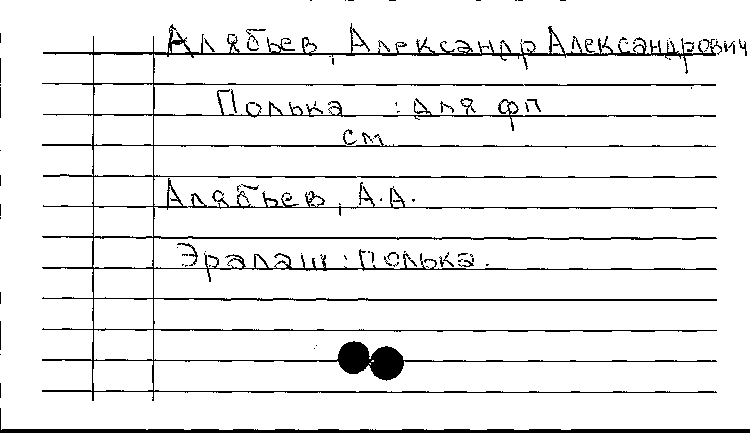 Алябьев, Александр Александрович
Полька : для фп
см
Алябьев, А.А.
Эралаш : полька.